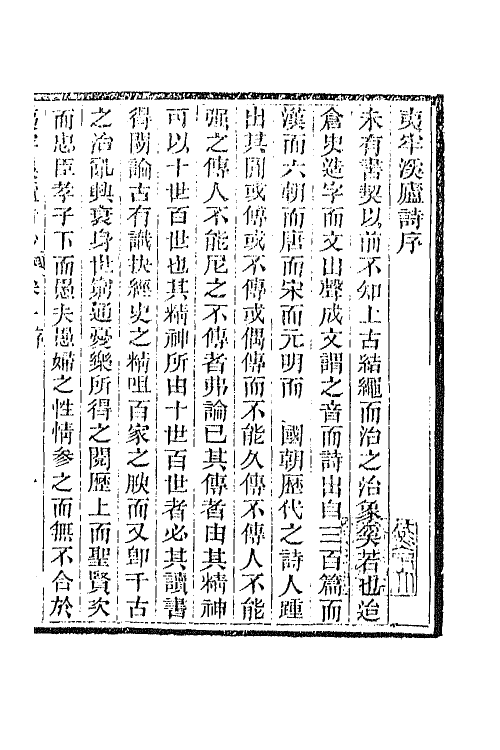 夷牢溪廬詩序
未有書契以前不知上古結繩而治之治象奚若也迨
倉史造字而文出聲成文謂之音而詩出自三百篇而
漢而六朝而唐而宋而元明而　國朝歷代之詩人踵
出其間或傳或不傳或偶傳而不能久傳不傳人不能
强之傳人不能尼之不傳者弗論已其傳者由其精神
可以十世百世也其精神所由十世百世者必其讀書
得閒論古有識抉經史之精咀百家之腴而又卽千古
之治亂興衰身世窮通憂樂所得之閱歷上而聖賢次
而忠臣孝子下而愚夫愚婦之性情參之而無不合於